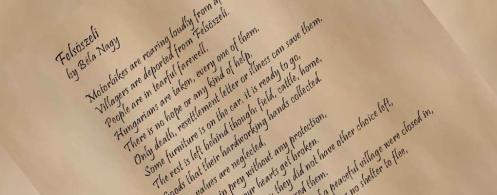 Felsőszeli
by Béla Nagy
Motorbikes are roaring loudly from
Villagers are deported from Felsőszeli.
People are in tearful farewell.
Hungarians are taken, every one of them.
There is no hope or any kind of help.
Only death, resettlement letter or illness can save them.
Some furniture is on the car, it is ready to go,
The rest is left behind though: field, cattle, home,
Goods that their hardworking hands collected.
are neglected,
prey without any protection,
hearts get broken.
they did not have other choice left,
a peaceful village were closed in,
of them.
no shelter to flee,